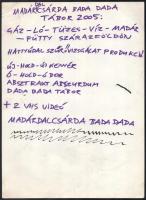 DAL
MADÁRCSÁRDA BADA DADA
TÁBOR 2005:
GÁZ-LÓ-TÜZES-VÍZ-MADÁR
- PÜTTY SZÁRAZFÖLDÖN
HATTYÚDAL SZŰRŐVIZSGÁLAT PRODUKCIÓ
ÚJ-HOLD-ÚJ
Ó-HOLD-ÓDOR
ABSZTRAKT ABSZURDUM
DADA DADA TÁBOR
+ 2 VHS VIDEÓ
MADÁRDALCSÁRDA BADA DADA